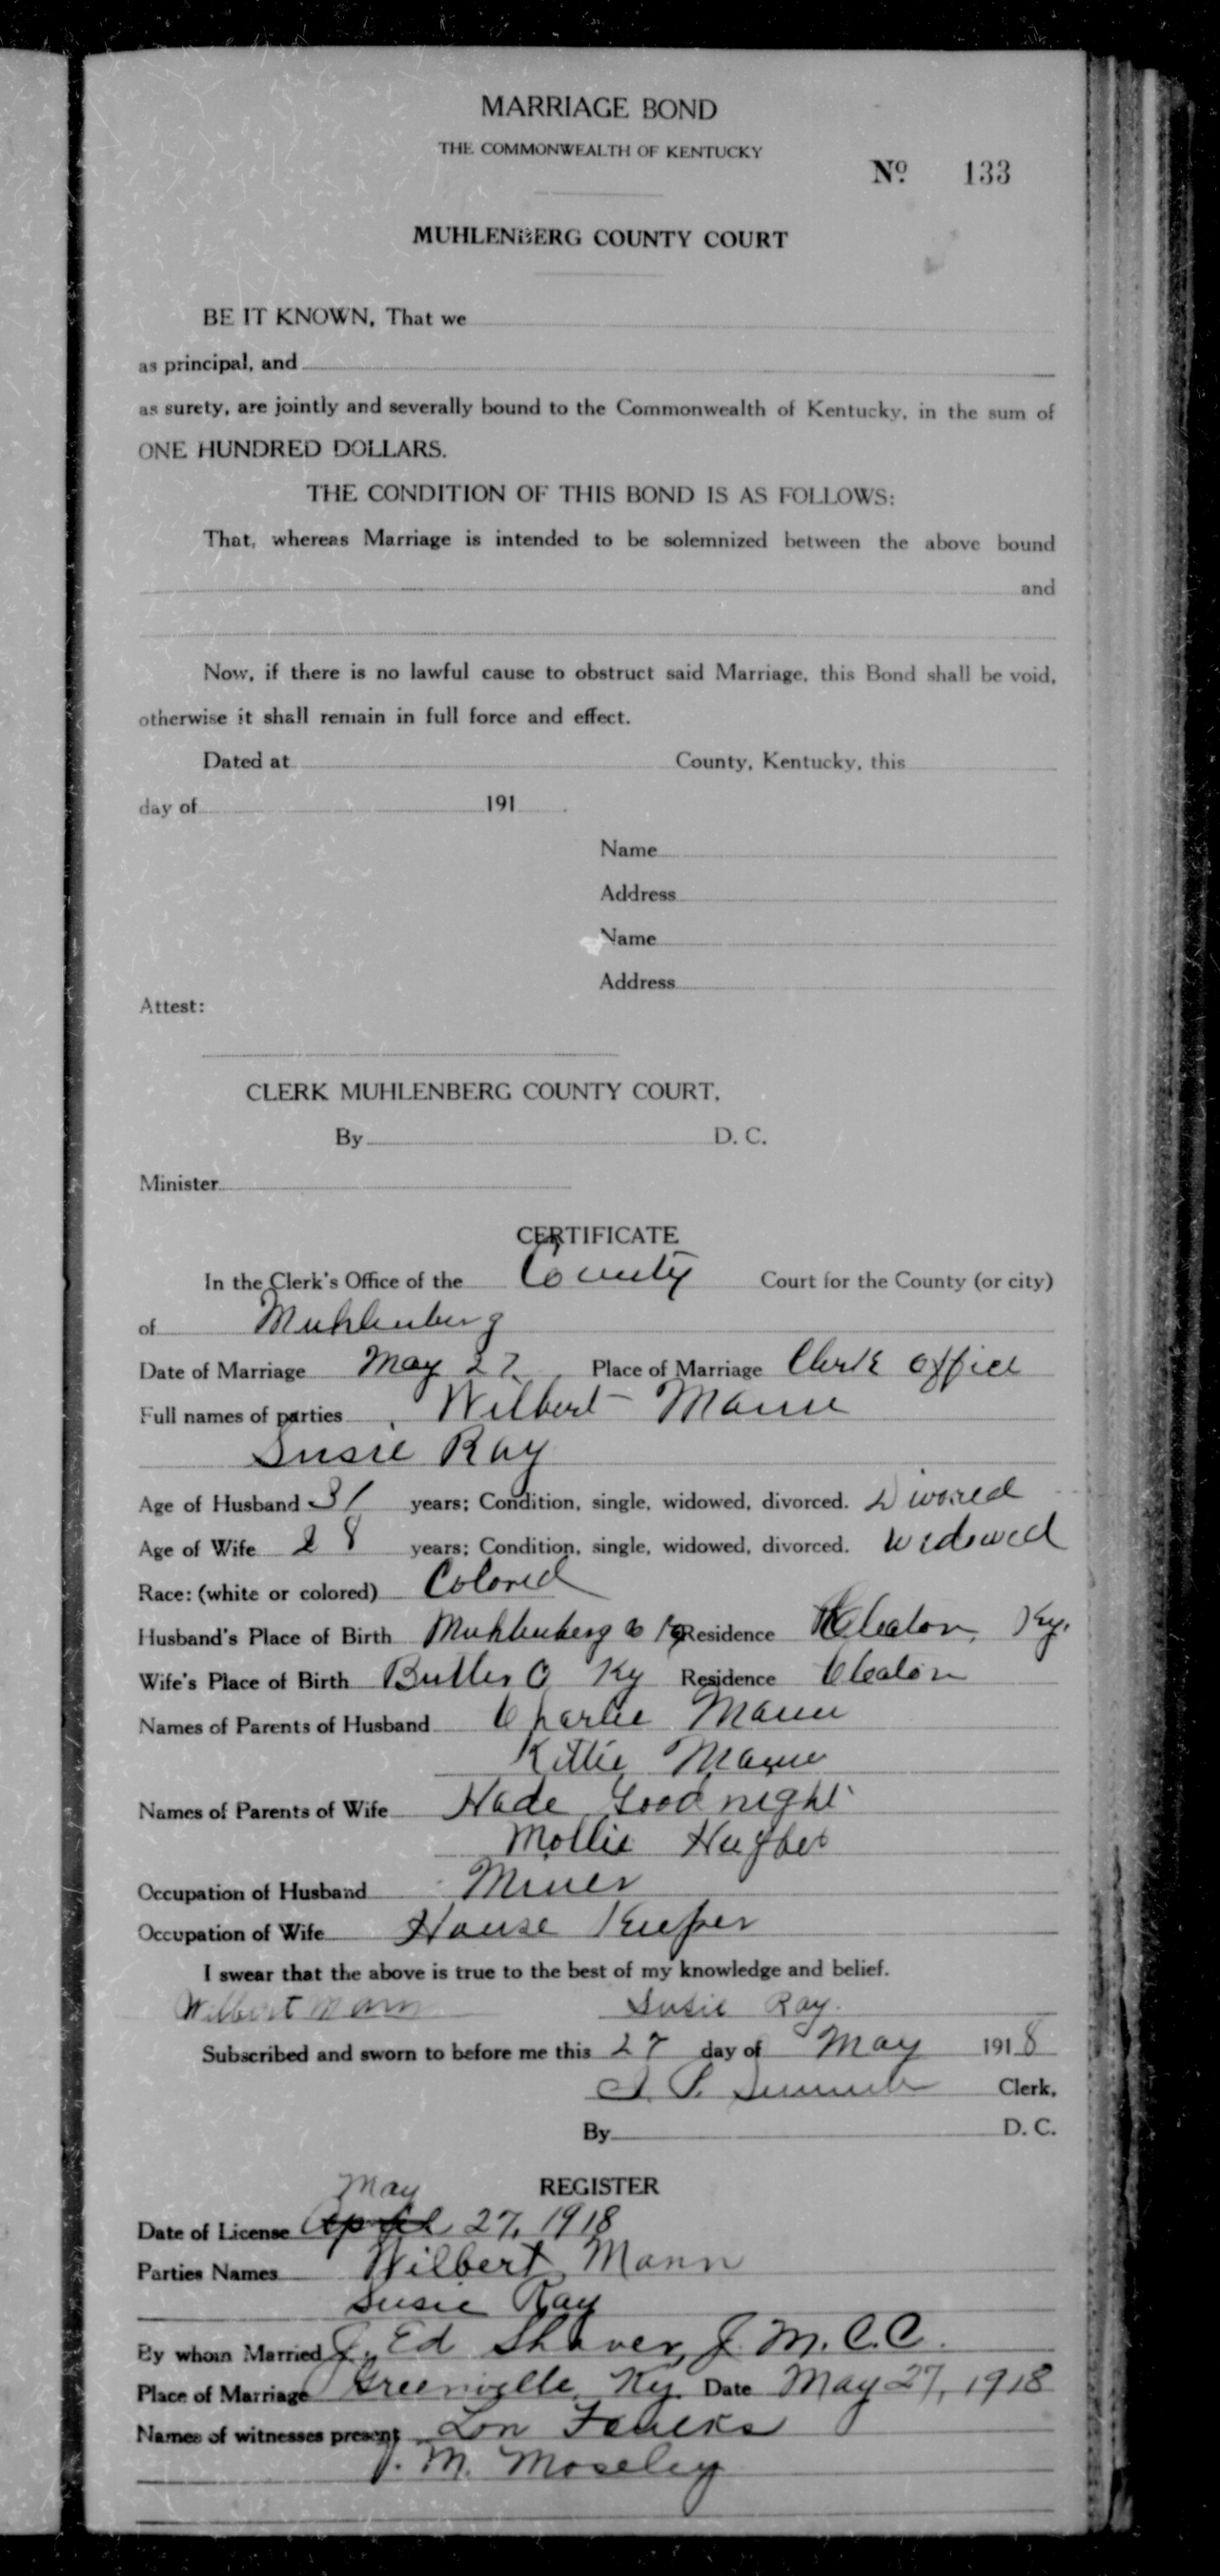 MARRIAGE BOND
THE COMMONWEALTH OF KENTUCKY
No. 133
MUHLENBERG COUNTY COURT
BE IT KNOWN, That we
as principal, and
as surety, are jointly and severally bound to the Commonwealth of Kentucky, in the sum of
ONE HUNDRED DOLLARS.
THE CONDITION OF THIS BOND IS AS FOLLOWS:
That, whereas Marriage is intended to be solemnized between the above bound
and
Now, if there is no lawful cause to obstruct said Marriage, this Bond shall be void,
otherwise it shall remain in full force and effect.
Dated at County, Kentucky, this
day of 191 .
Name
Address
Name
Address
Attest:
CLERK MUHLENBERG COUNTY COURT.
By D. C.
Minister
CERTIFICATE
In the Clerk's Office of the County Court for the County (or city)
of Muhlenberg
Date of Marriage May 27 Place of Marriage Clerk office
Full names of parties Wilbert Mann
Susie Ray
Age of Husband 31 years; Condition, single, widowed, divorced. Divorced
Age of Wife 28 years; Condition, single, widowed, divorced. Widowed
Race: (white or colored) Colored
Husband's Place of Birth Muhlenberg Co Ky Residence Cleaton, Ky.
Wife's Place of Birth Butler Co Ky Residence Cleaton
Names of Parents of Husband Charlie Mann
Kittie Mann
Names of Parents of Wife Wade Goodnight
Mollie Hughes
Occupation of Husband Miner
Occupation of Wife House Keeper
I swear that the above is true to the best of my knowledge and belief.
Wilbert Mann Susie Ray.
Subscribed and sworn to before me this 27 day of May 1918
Clerk.
By D. C.
REGISTER
May
Date of License April 27, 1918
Parties Names Wilbert Mann
Susie Ray
By whom Married J. Ed Shaver, J. M. C. C.
Place of Marriage Greenville, Ky. Date May 27, 1918
Names of witnesses present Lon Faulks
J. M. Moseley